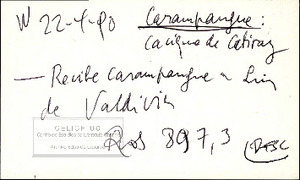 W 22-4-80 Carampangue:
Cacique de Catiray
— Recibe Carampangue a Luis
de Valdivia
Ros 897,3
CELICH UC